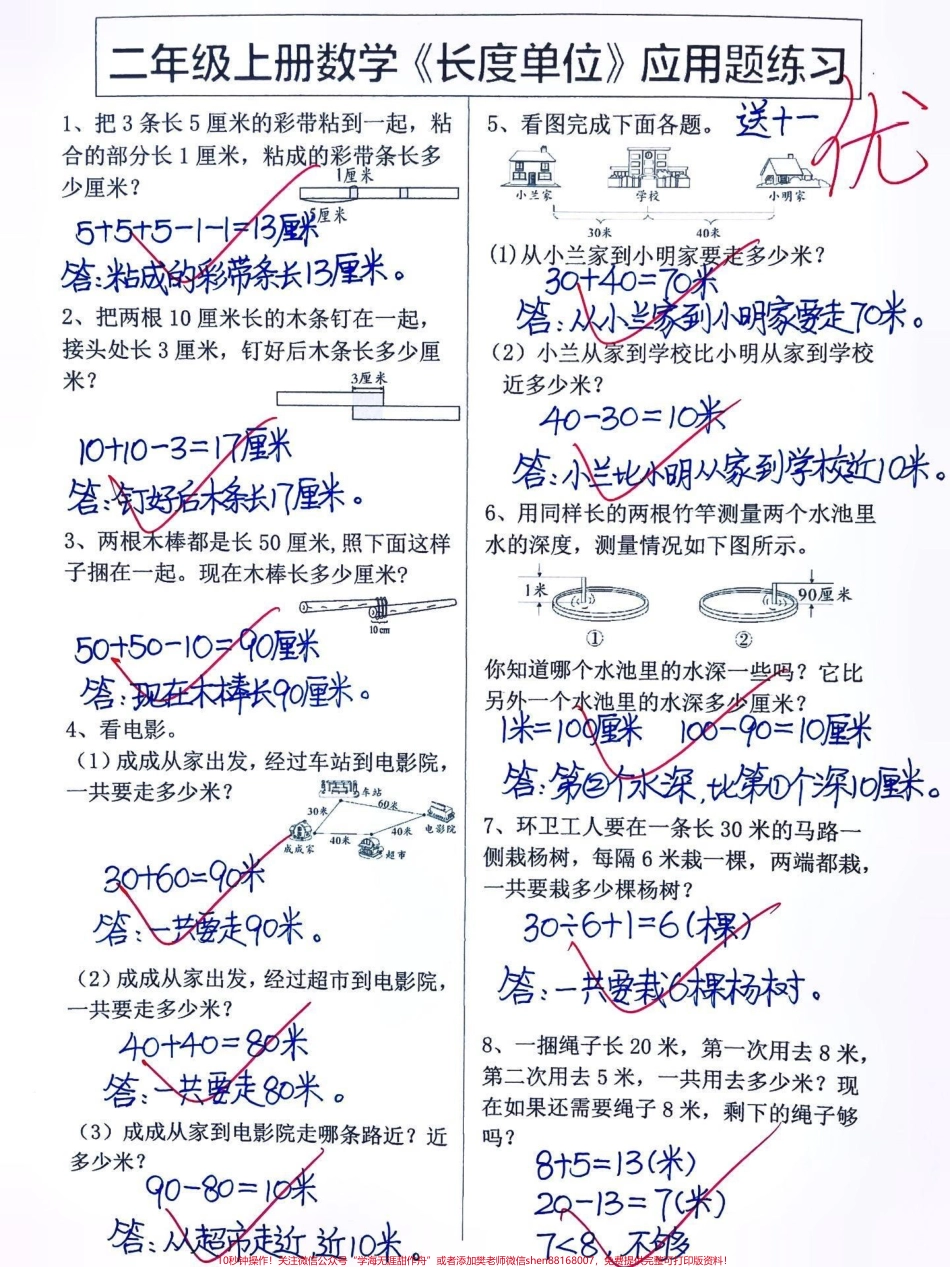 二年级上册数学《长度单位》应用题练习
优
1、把 3 条长 5 厘米的彩带粘到一起，粘
合的部分长 1 厘米，粘成的彩带条长多
少厘米？
1厘米
5厘米
5+5+5-1-1=13厘米
答:粘成的彩带条长13厘米。
2、把两根 10 厘米长的木条钉在一起，
接头处长 3 厘米，钉好后木条长多少厘
米？
3厘米
10+10-3=17厘米
答:钉好后木条长17厘米。
3、两根木棒都是长 50 厘米,照下面这样
子捆在一起。现在木棒长多少厘米?
10 cm
50+50-10=90厘米
答:现在木棒长90厘米。
4、看电影。
（1）成成从家出发，经过车站到电影院，
一共要走多少米？
车站
30米
60米
电影院
成成家
40米
40米
超市
30+60=90米
答:一共要走90米。
（2）成成从家出发，经过超市到电影院，
一共要走多少米？
40+40=80米
答:一共要走80米。
（3）成成从家到电影院走哪条路近？近
多少米？
90-80=10米
答:从超市走近 近10米。
5、看图完成下面各题。 送十一
小兰家
学校
小明家
30米
40米
(1)从小兰家到小明家要走多少米？
30+40=70米
答:从小兰家到小明家要走70米。
（2）小兰从家到学校比小明从家到学校
近多少米？
40-30=10米
答:小兰比小明从家到学校近10米。
6、用同样长的两根竹竿测量两个水池里
水的深度，测量情况如下图所示。
1米
90厘米
①
②
你知道哪个水池里的水深一些吗？它比
另外一个水池里的水深多少厘米？
1米=100厘米 100-90=10厘米
答:第②个水深,比第①个深10厘米。
7、环卫工人要在一条长 30 米的马路一
侧栽杨树，每隔 6 米栽一棵，两端都栽，
一共要栽多少棵杨树？
30÷6+1=6(棵)
答:一共要栽6棵杨树。
8、一捆绳子长 20 米，第一次用去 8 米，
第二次用去 5 米，一共用去多少米？现
在如果还需要绳子 8 米，剩下的绳子够
吗？
8+5=13(米)
20-13=7(米)
7<8，不够
10秒钟操作！关注微信公众号“学海无涯甜作舟”或者添加樊老师微信shen88168007，免费提供完整可打印版资料！